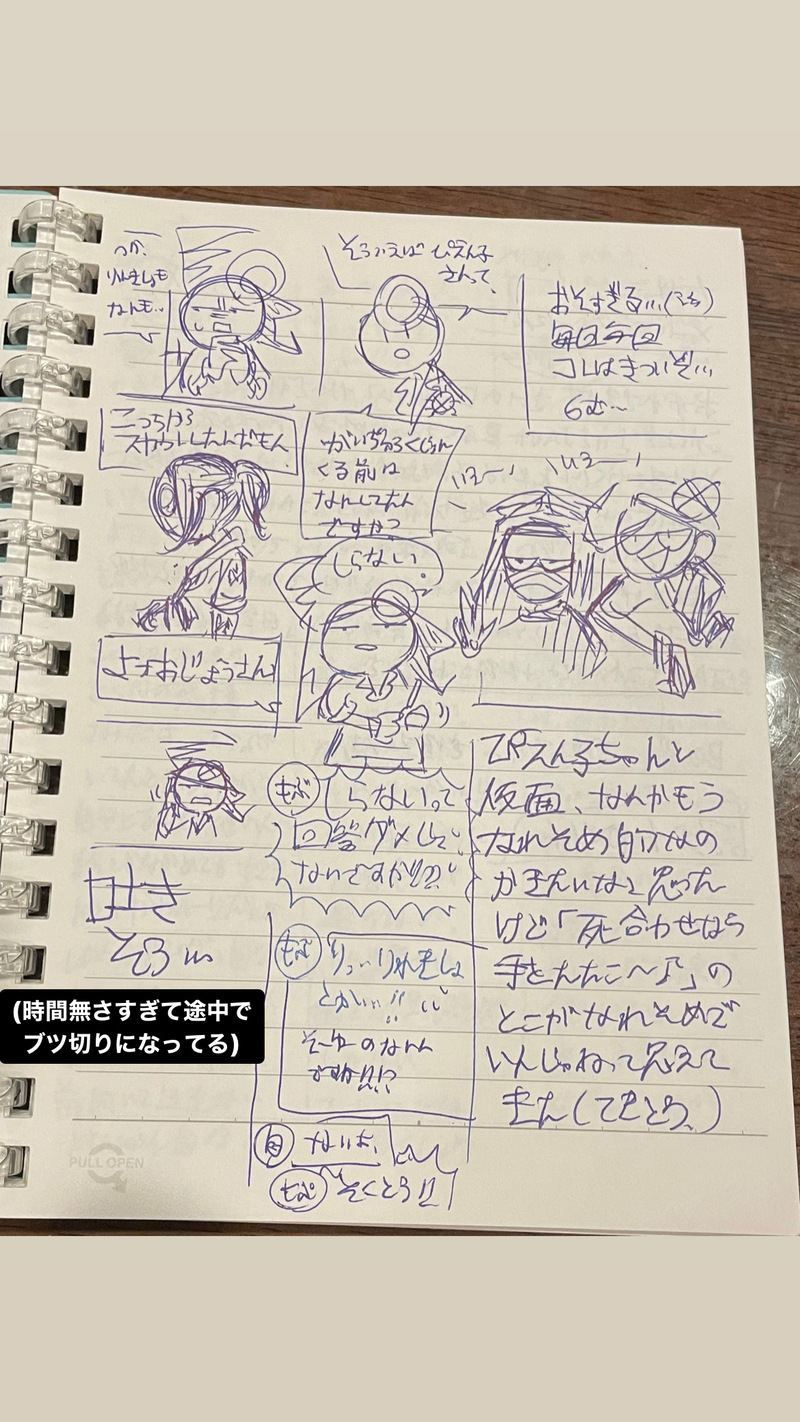 おそすぎる…
毎日毎日
コレはきついぞ…
そういえば ぴえん子
さんって、
くる前は
なにしてたん
ですか?
しらない。
こっちから
スカウトしたんだもん
よォおじょうさん
もぶ
しらないって
回答ダメじゃ
ないですか!?
もぶ りれきしょ
とか…!!
そーゆーのなにん
ないよ。
もぶ そくとう!!
ぴえん子ちゃんと
仮面、なんかもう
なれそめ的なの
かきたいなと思った
けど「死合わせなら
手をたたこ〜♪」の
とこがなれそめで
いんじゃねって思えて
きた(てきとう。)
(時間無さすぎて途中で
ブツ切りになってる)
PULL OPEN